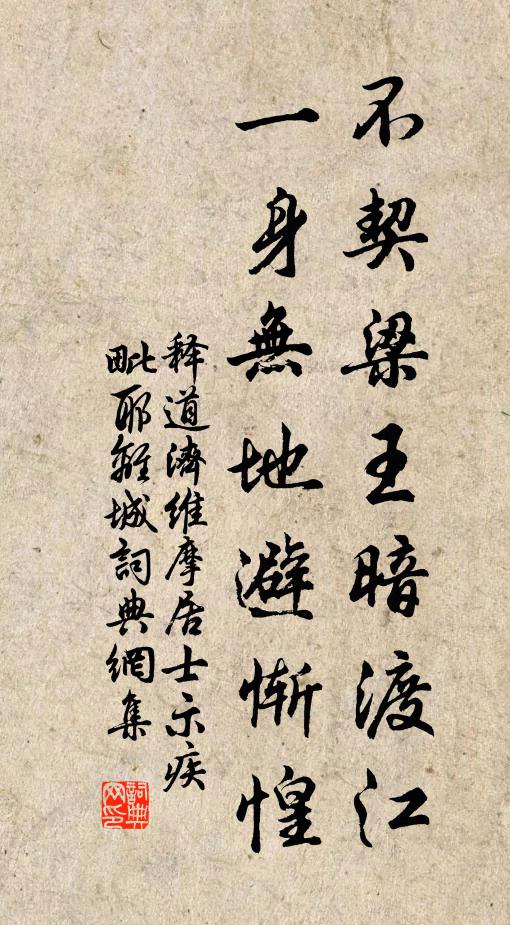 不契梁王暗渡江
一身無地避慚惶
释道濟維摩居士示疾
毗耶離城詞典網集
詞典网印